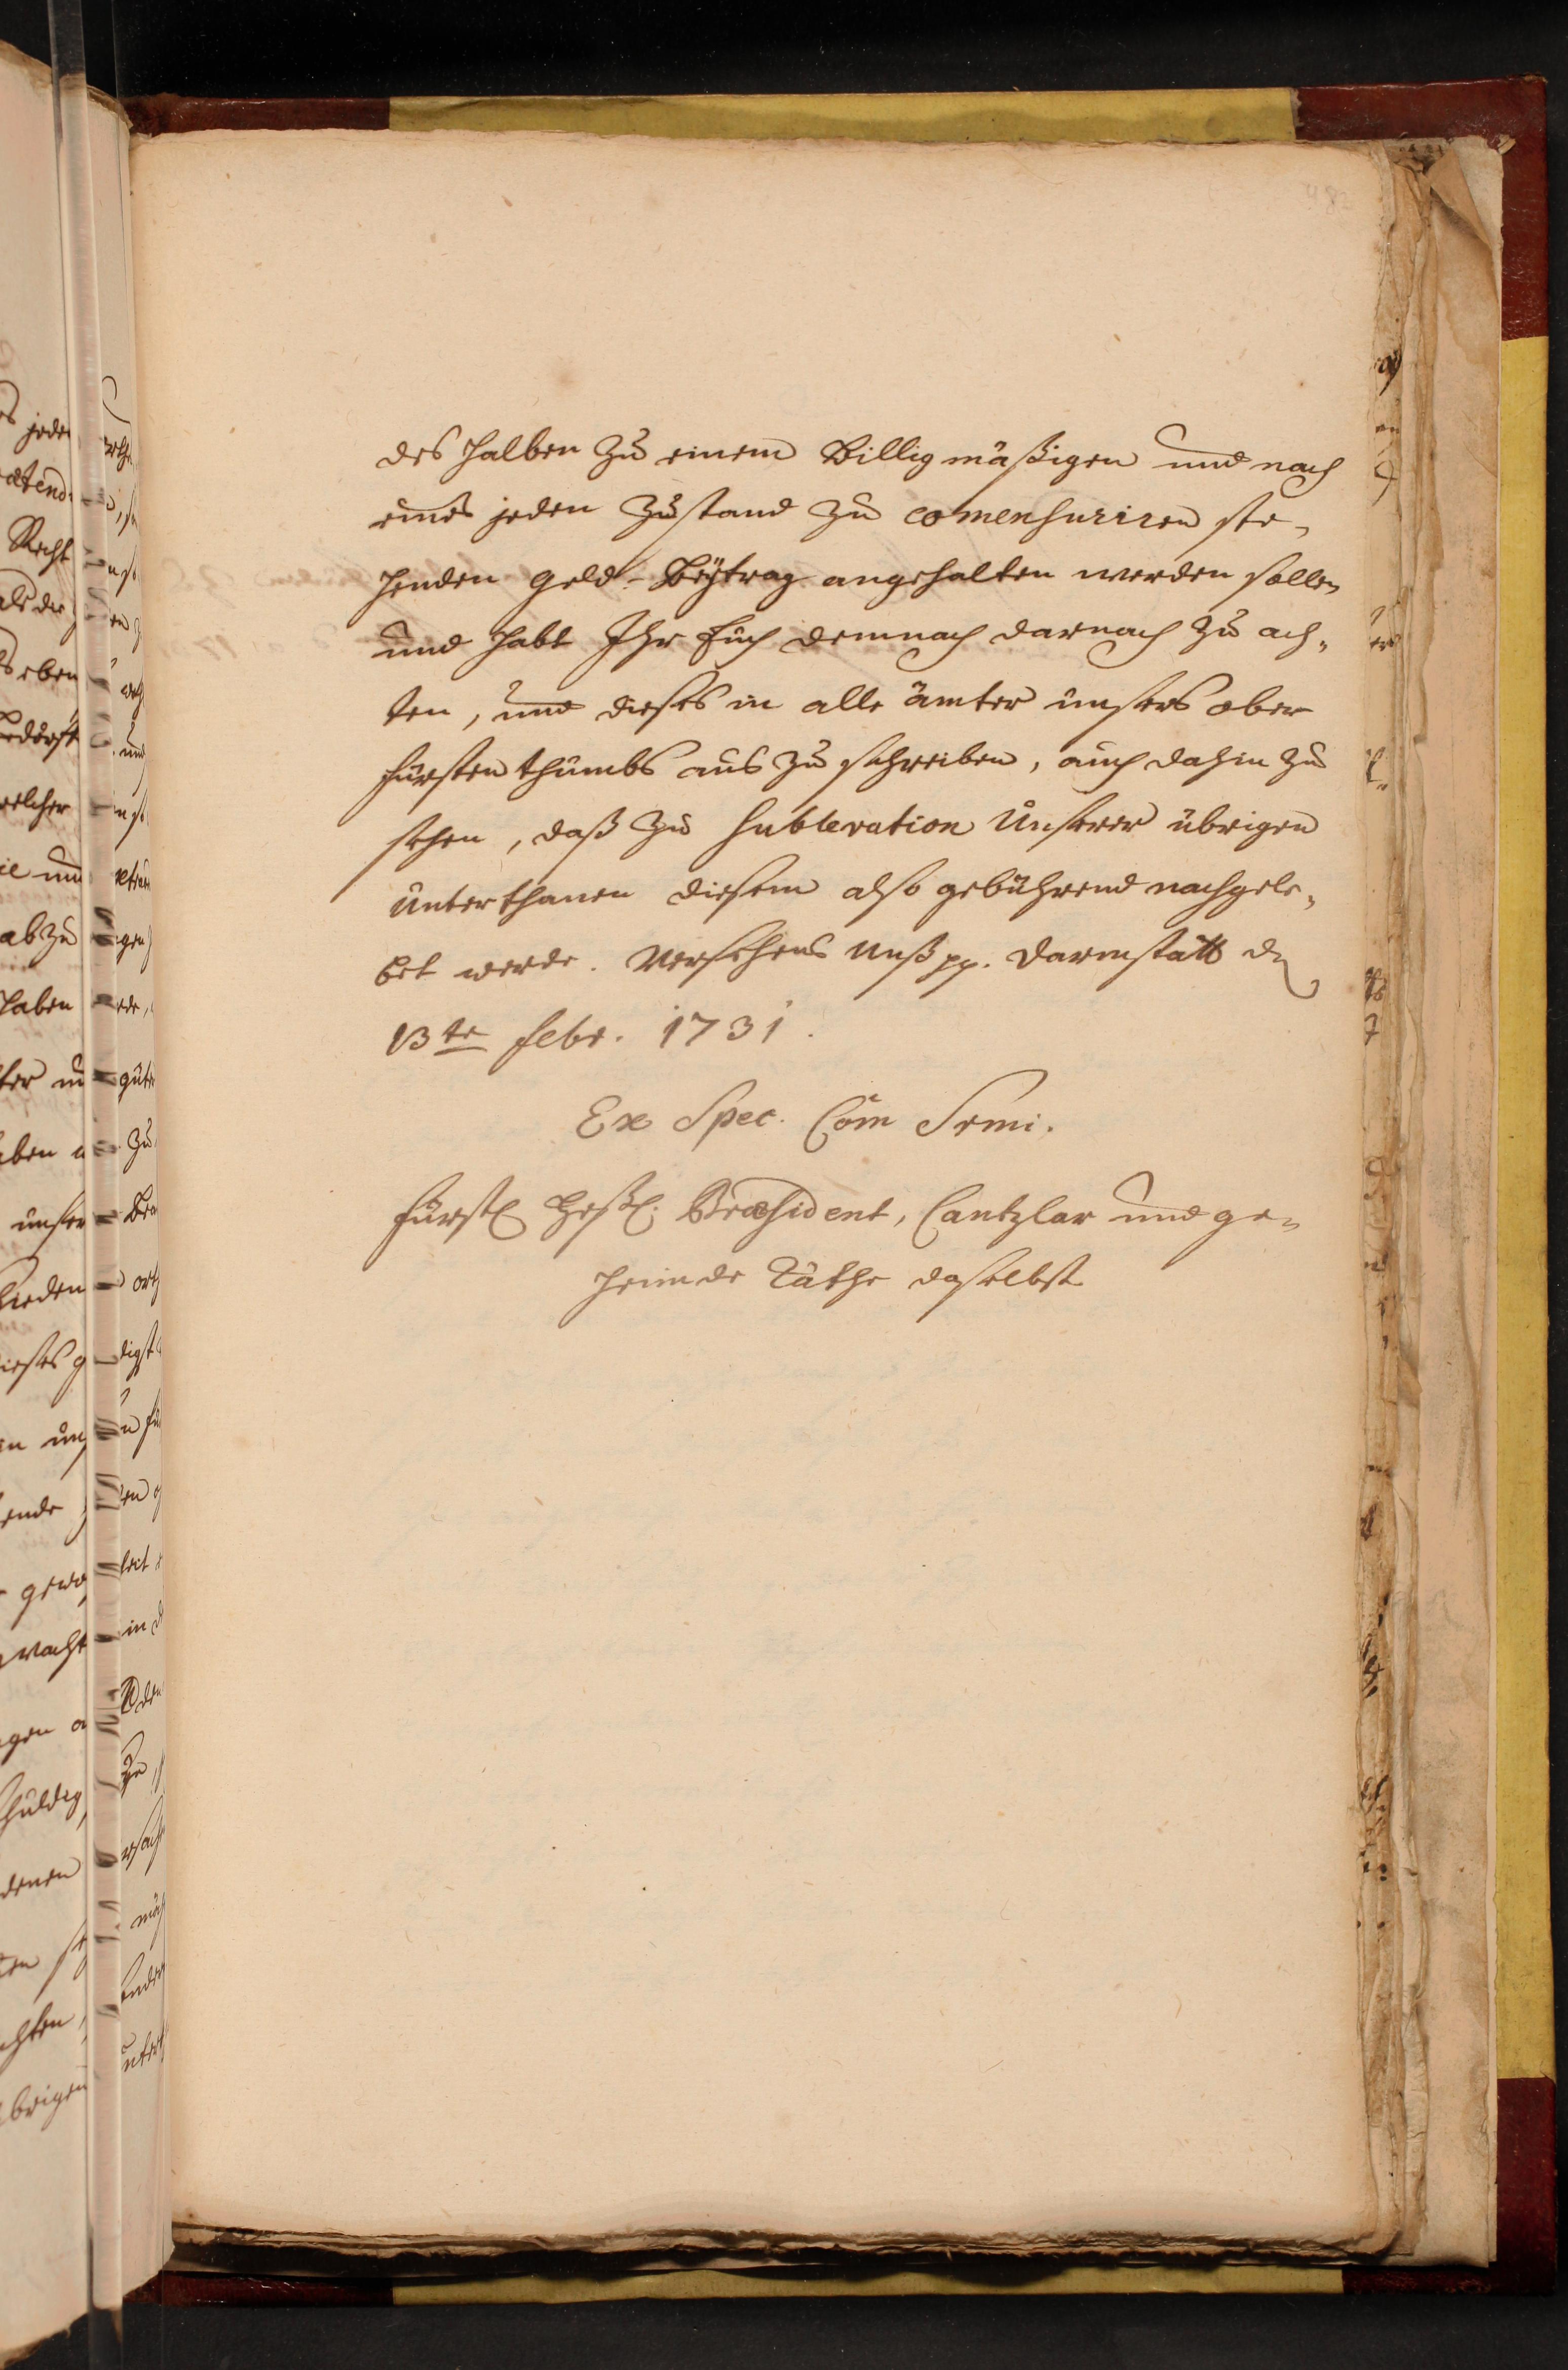 482
des halben zu einem billigmäßigen und nach
eines jeden Zustand zu comensuriren ste-
henden Geld-Beytrag angehalten werden sollen
und habt Ihr Euch demnach darnach zu ach-
ten, und dieses in alle ämter unsers ober
fürstenthumbs aus zu schreiben, auch dahin zu
sehen, daß zu Sublevation Unserer übrigen
Unterthanen diesem also gebührend nachgele-
bet werde. Versehens Unß pp. Darmstatt d.
13te febr. 1731.
Ex Spec. Com̃ Srmi.
Fürstl. Heßl. Præsident, Cantzlar und ge-
heimde Räthe daselbst